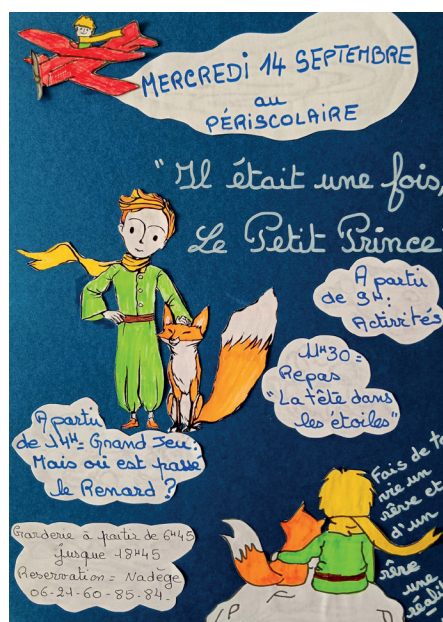 MERCREDI 14 SEPTEMBRE
au
PÉRISCOLAIRE
"Il était une fois,
Le Petit Prince"
A partir
de 9H:
Activités
11H30=
Repas
"La tête dans
les étoiles"
A partir
de 14H= Grand Jeu:
Mais où est passé
le Renard ?
Garderie à partir de 6H45
jusque 18H45
Reservation = Nadège
06-21-60-85-84.
Fais de ta
vie un
rêve et
d'un
rêve
une
réali